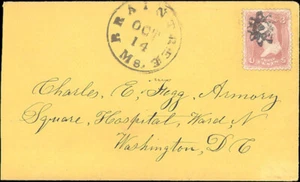 BRAINTREE
OCT
14
Ms.
Charles, E, Fogg, Armory
Square, Hospital, Ward N
Washington, D C